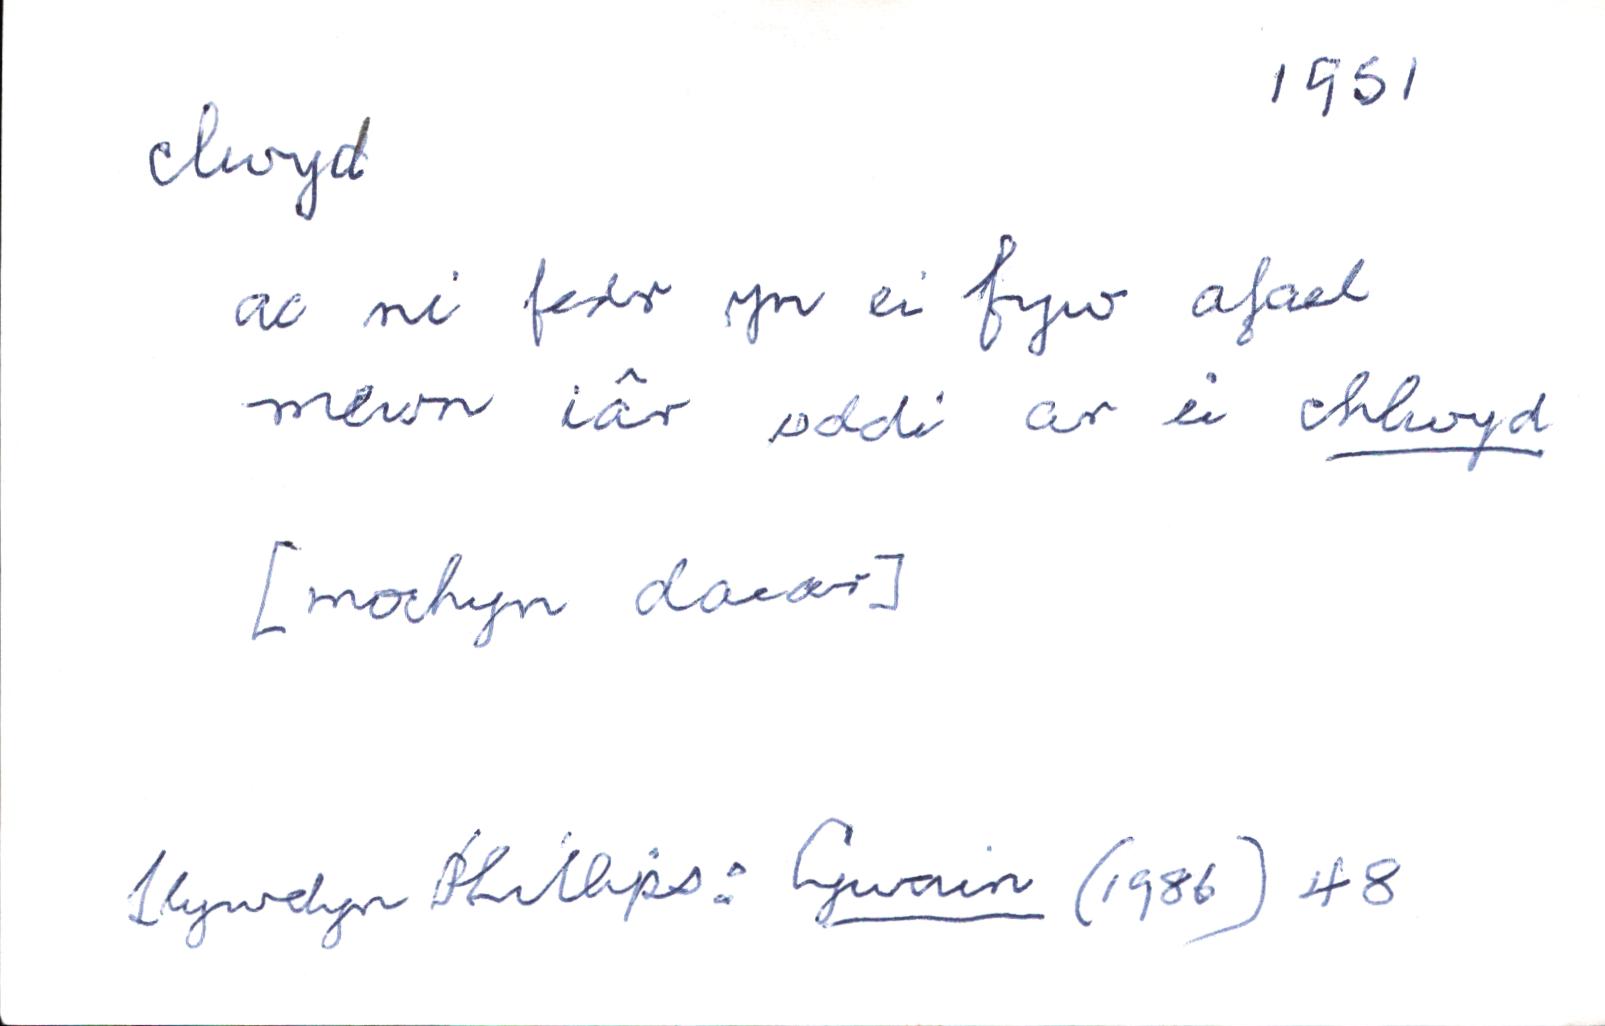 1951
clwyd
ac ni fedr yn ei fyw afael
mewn iâr oddi ar ei chlwyd
[mochyn daear]
Llywelyn Phillips: Cywain (1986) 48